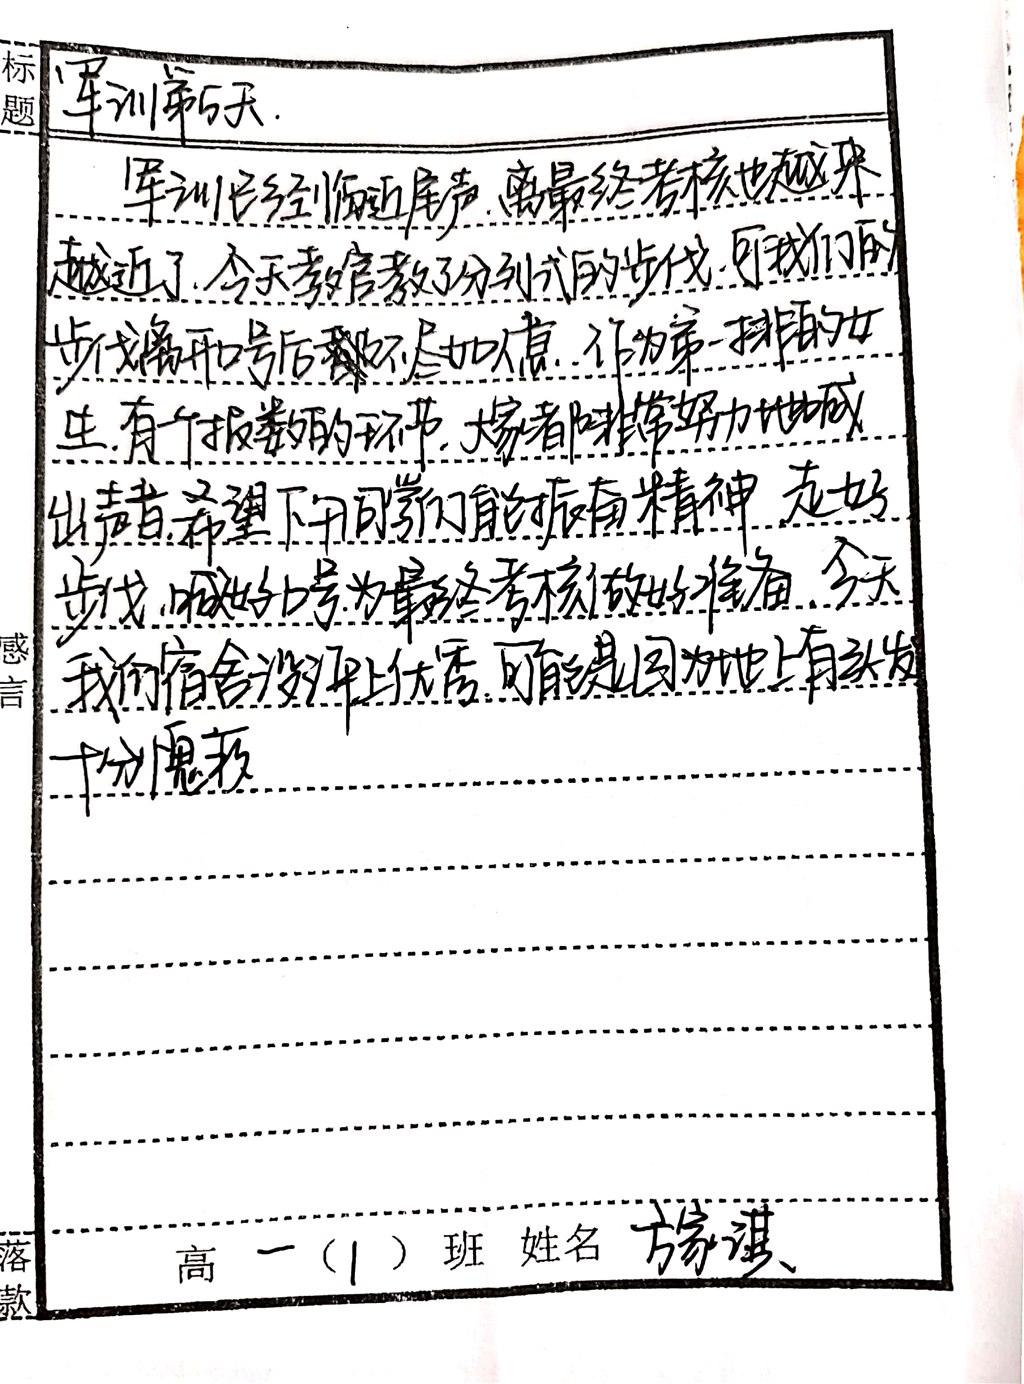 标题
军训第5天.
军训已经临近尾声,离最终考核也越来
越近了,今天教官教了分列式的步伐,可我们的
步伐离开口号后都不尽如人意. 作为第一排的女
生,有个报数的环节,大家都非常努力地喊
出声音,希望下午同学们能振奋精神 走好
步伐,喊好口号,为最终考核做好准备,今天
我们宿舍没评上优秀,可能是因为地上有头发
十分愧疚
感言
落款
高一(1)班 姓名 方家淇